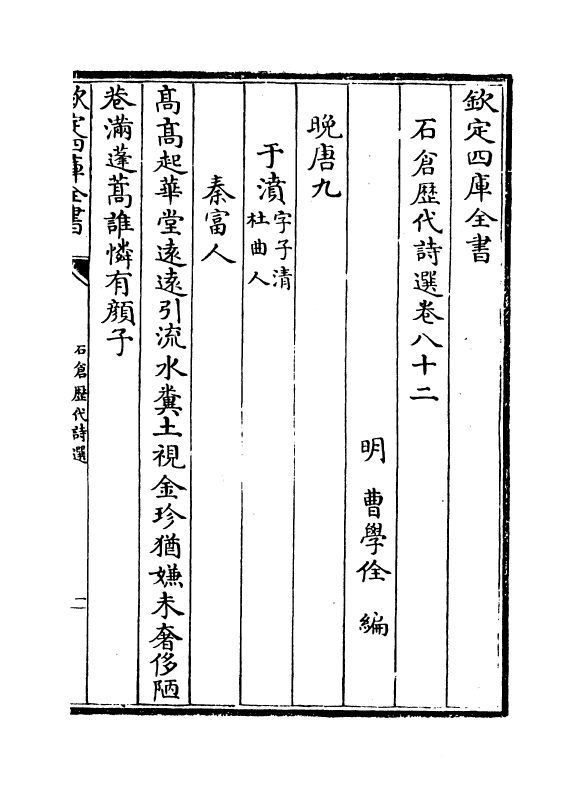 欽定四庫全書
石倉歴代詩選卷八十二
明 曹學佺 編
晚唐九
于濆字子清
杜曲人
秦富人
髙髙起華堂逺逺引流水糞土視金珍猶嫌未奢侈陋
巷滿蓬蒿誰憐有顔子
欽定四庫全書
石倉歴代詩選